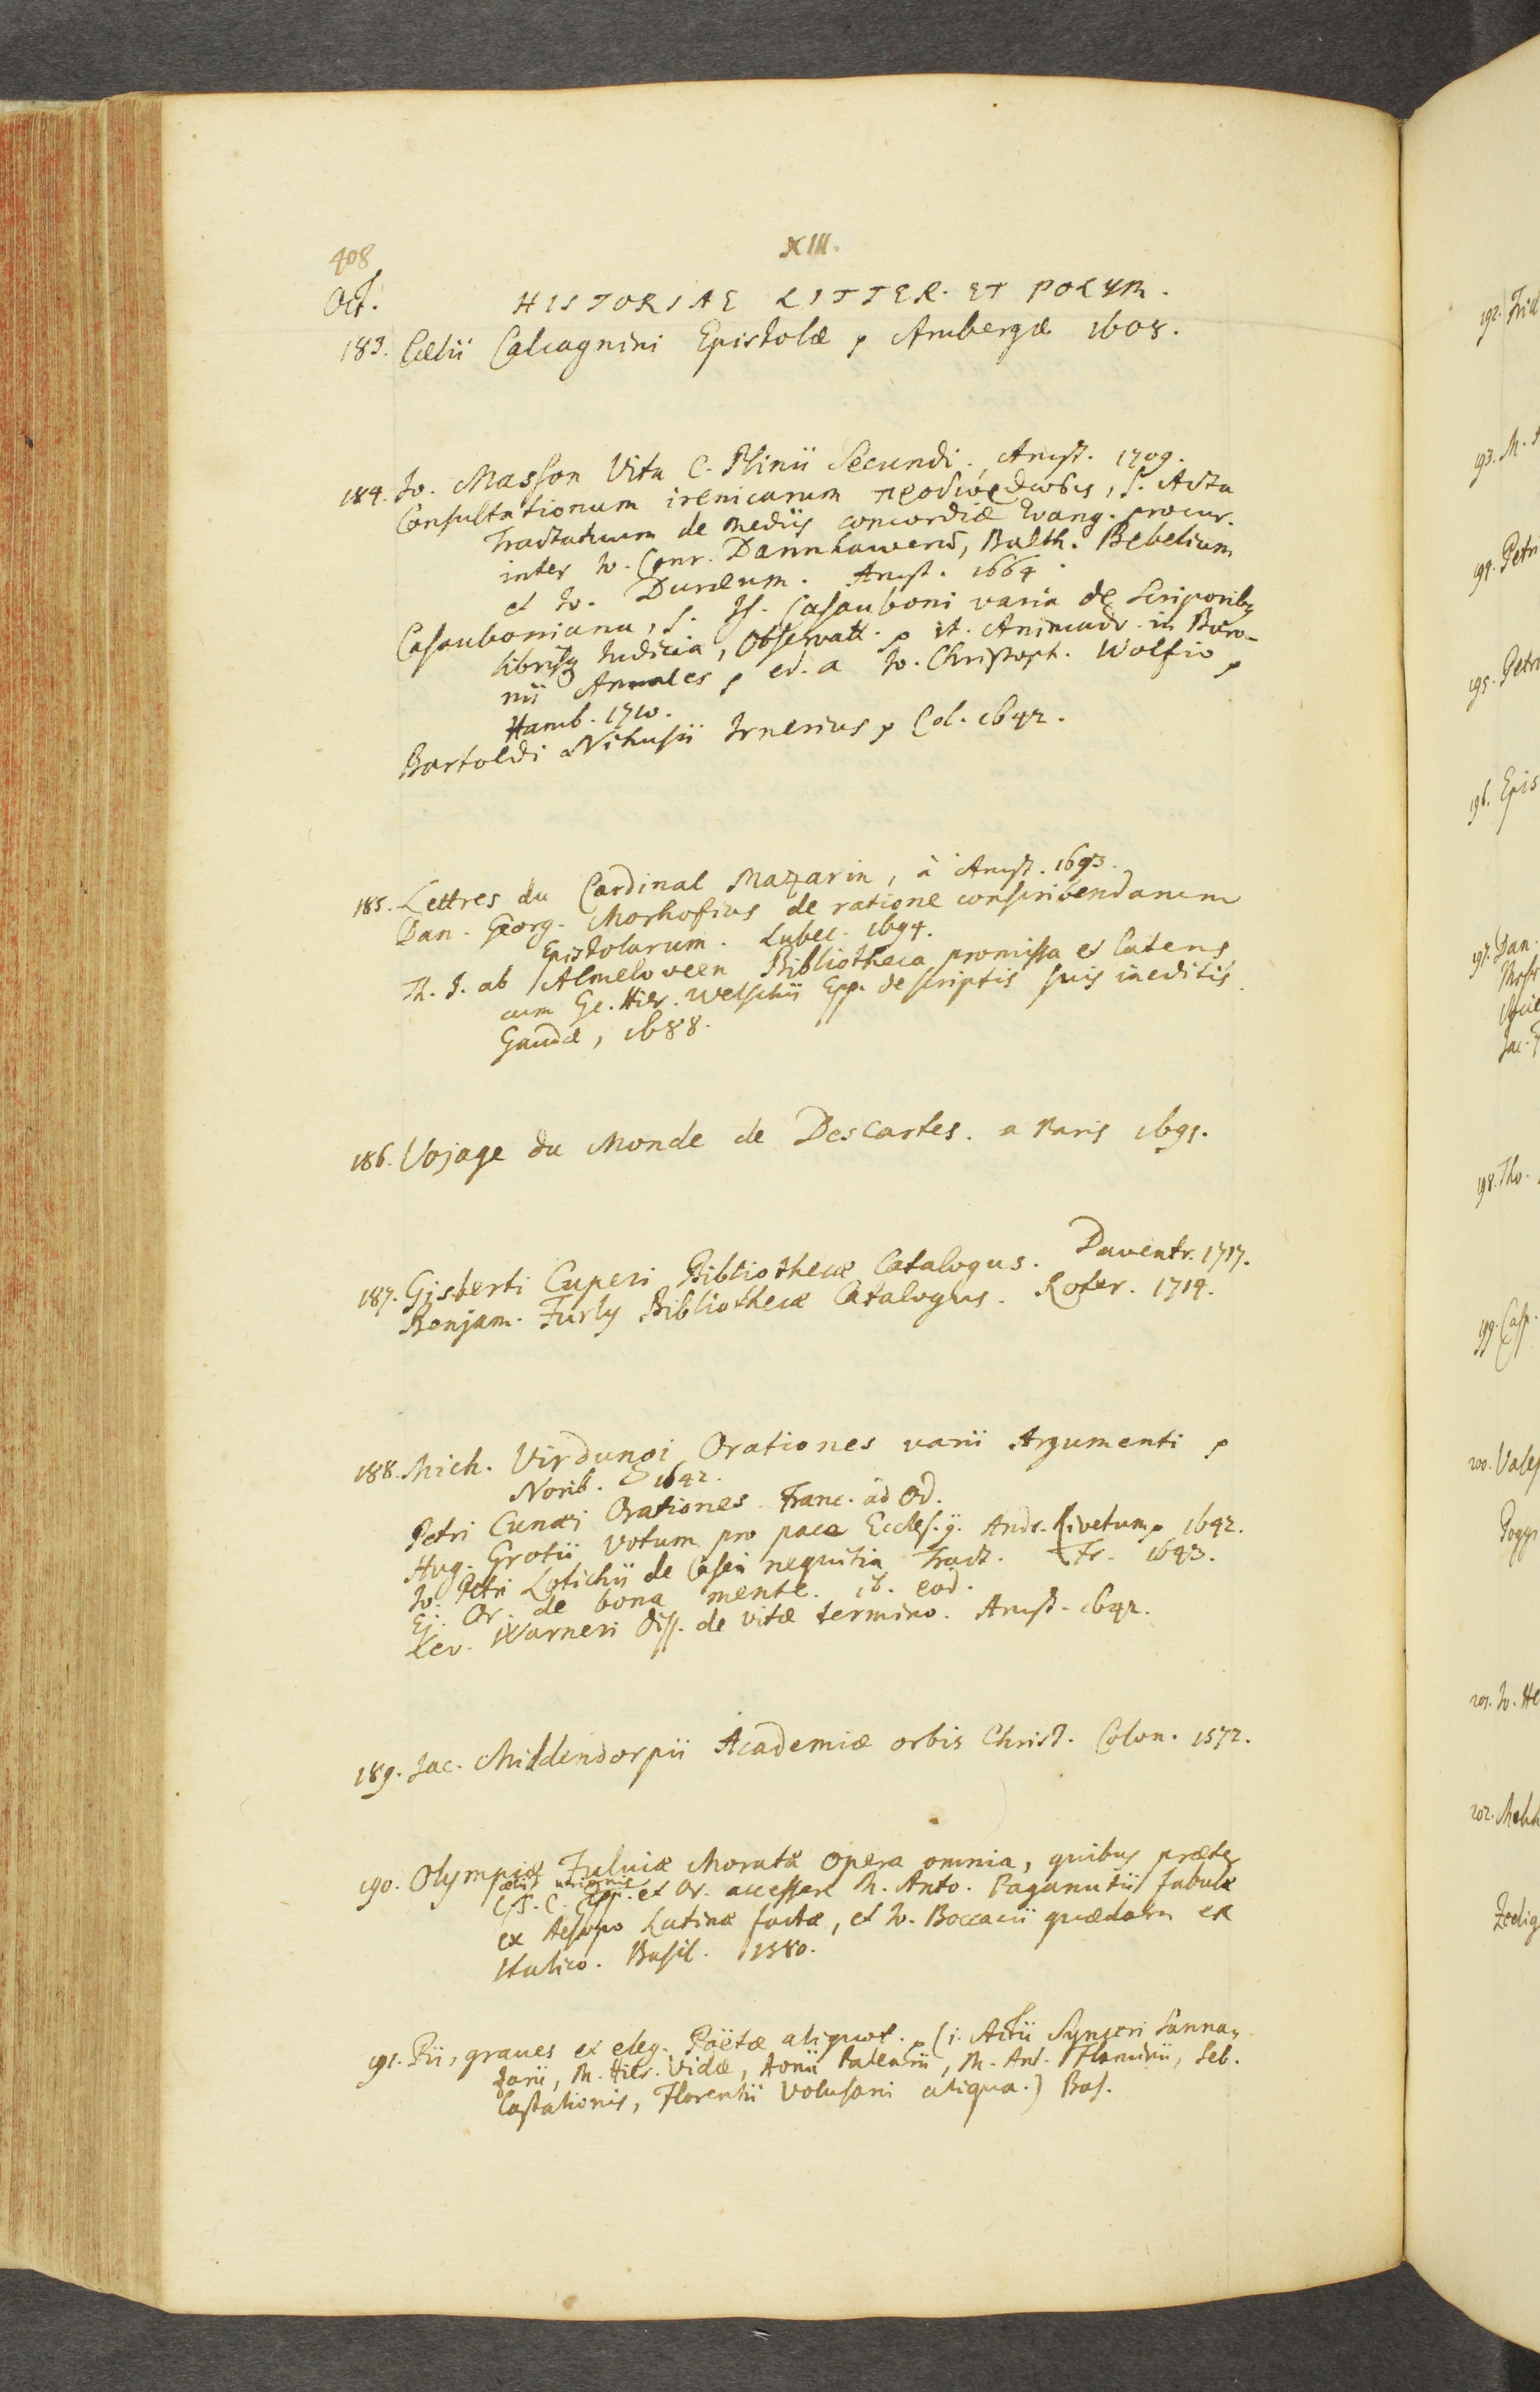 408
XIII.
Oct.
HISTORIAE LITTER. ET POLYM.
183. Cælii Calcagnini Epistolæ, Ambergæ 1608.
184. Jo. Masson Vita C. Plinii Secundi. Amst. 1709.
Consultationum irenicarum προδιόρθωσις, s. Acta
Tractatuum de mediis concordiæ Evang. procur.
inter Jo. Conr. Dannhawerũ, Balth. Bebelium
et Jo. Duræum. Amst. 1664.
Casauboniana, s. Is. Casauboni varia de Scriptoribq
librisq Judicia, Observatt. it. Animadv. in Baro-
nii Annales, ed. a Jo. Christoph. Wolfio,
Hamb. 1710.
Bartoldi Nihusii Irnerius, Col. 1642.
185. Lettres du Cardinal Mazarin, à Amst. 1693.
Dan. Georg. Morhofius de ratione conscribendarum
Epistolarum. Lubec. 1694.
Th. J. ab Almeloveen Bibliotheca promissa et latens
cum Ge. Hier. Welschii Epp. de scriptis suis ineditis.
Gaudæ, 1688.
186. Vojage du Monde de Descartes. a Paris 1691.
187. Gisberti Cuperi Bibliothecæ Catalogus. Daventr. 1717.
Benjam. Furly Bibliothecæ Catalogus. Roter. 1714.
188. Mich. Virdungi Orationes varii Argumenti,
Norib. 1642.
Petri Cunæi Orationes Franc. ad Od.
Hug. Grotii votum pro pace Eccles. Andr. Rivetum, 1642.
Jo. Petri Lotichii de Casei nequitia Tract. Fr. 1643.
Ej. Or. de bona mente. ib. eod.
Lev. Warneri Diss. de vitæ termino. Amst. 1642.
189. Jac. Middendorpii Academiæ orbis Christ. Colon. 1572.
190. Olympiæ Fulviæ Moratæ opera omnia, quibus præter
Cælii
C. S. C. Epp. et Or. accessere M. Anto. Paganutii fabulæ
ex Aesopo Latinæ factæ, et Jo. Boccacii quædam ex
Italico. Basil. 1580.
191. Pii, graves et eleg. Poëtæ aliquot. (i. Actii Synceri Sanna-
zarii, M. Hier. Vidæ, Aonii Palearii, M. Ant. Flaminii, Seb.
Castalionis, Florentii Volusani aliqua.) Bas.
192.
193. M.
194. Petri
195. Petri
196. Epis
197. Dan.
Jac.
198. Tho.
199. Casp.
200.
Poggi
201. Jo. He
202.